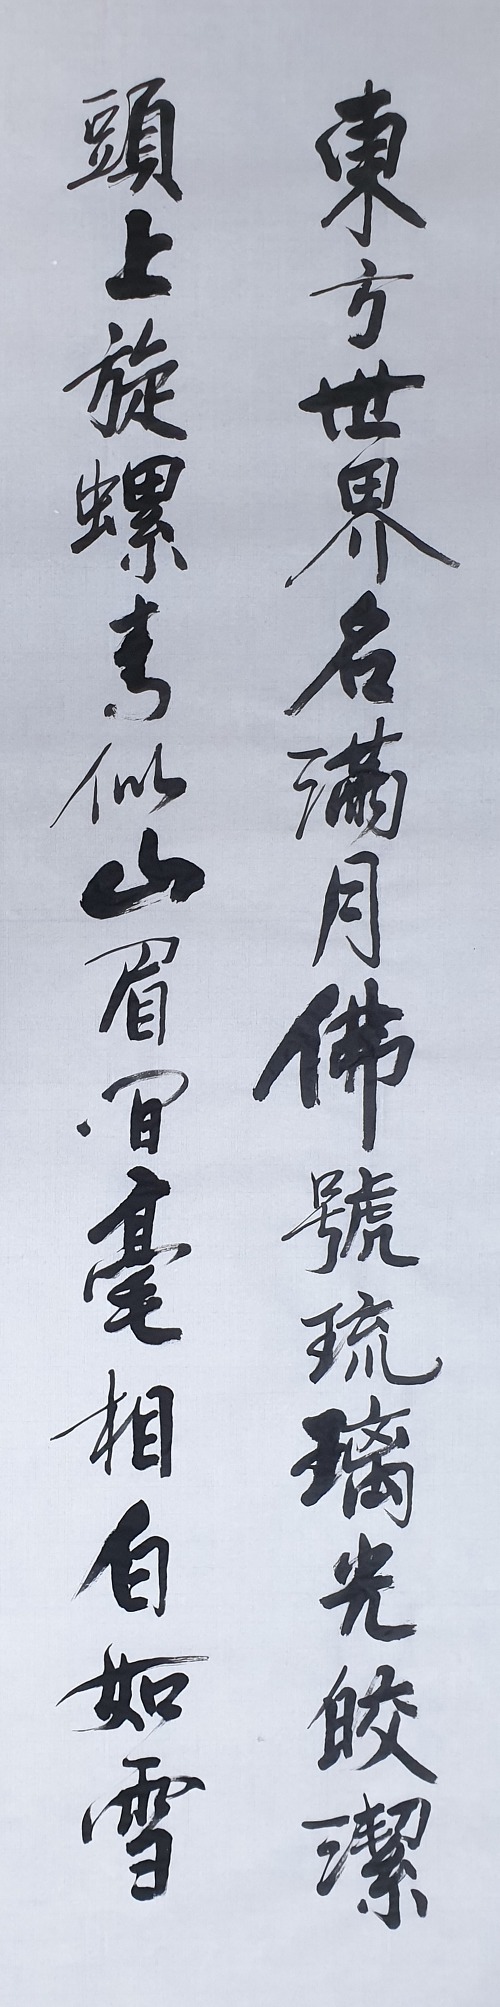 東方世界名滿月佛號琉璃光皎潔
頭上旋螺青似山眉間毫相白如雪